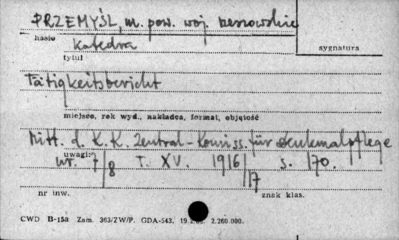 PRZEMYŚL, m. pow. woj. rzeszowskie
hasło
Katedra
sygnatura
tytuł
Tätigkeitsbericht
miejsce, rok wyd., nakładca, format, objętość
Mitt. d. K. K. Zentral-Komiss. für Denkmalpflege
uwagi:
nr. 7/8 T. XV. 1916/17 s. 170.
nr inw.
znak klas.
CWD B-158 Zam. 363/ZW/P. GDA-543. 2.200.000.